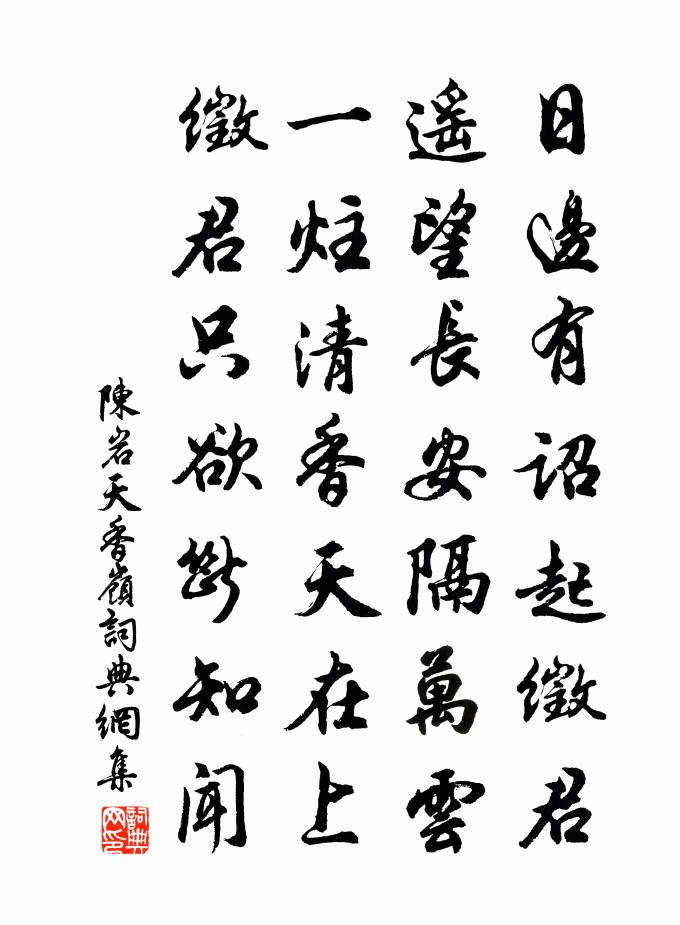 日邊有詔起徵君
遙望長安隔萬雲
一炷清香天在上
徵君只欲斷知聞
陳岩天香嶺詞典網集
詞典网印